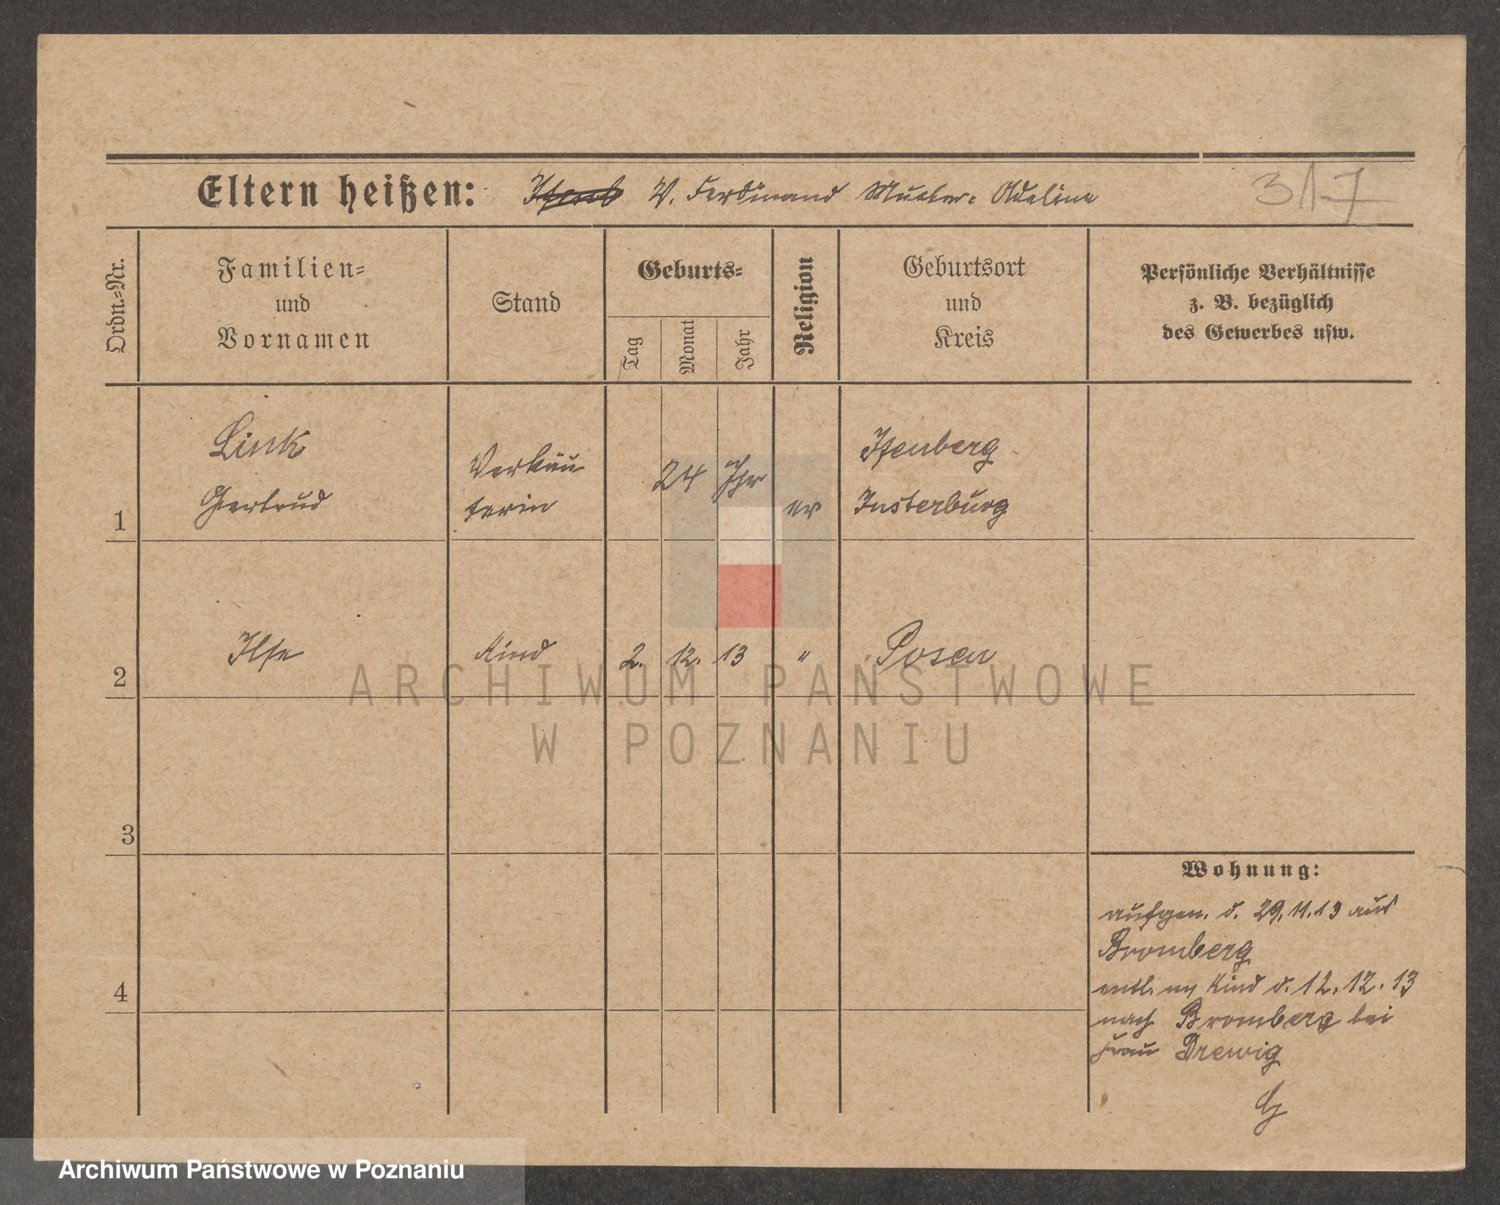 Eltern heißen: V. Ferdinand Mutter: Adeline
317
Ordn=Nr.
Familien=
und
Vornamen
Stand
Geburts=
Tag
Monat
Jahr
Religion
Geburtsort
und
Kreis
Persönliche Verhältnisse
z. B. bezüglich
des Gewerbes usw.
1
Link
Gertrud
Verkäu
ferin
24 Jhr
ev
Isenberg
Insterburg
2
Ilse
Kind
2. 12. 13
"
Posen
3
4
Wohnung:
aufgen. d. 29.11.13 aus
Bromberg
entl. m Kind d. 12.12.13
nach Bromberg bei
Frau Drewig
ARCHIWUM PAŃSTWOWE
W POZNANIU
Archiwum Państwowe w Poznaniu